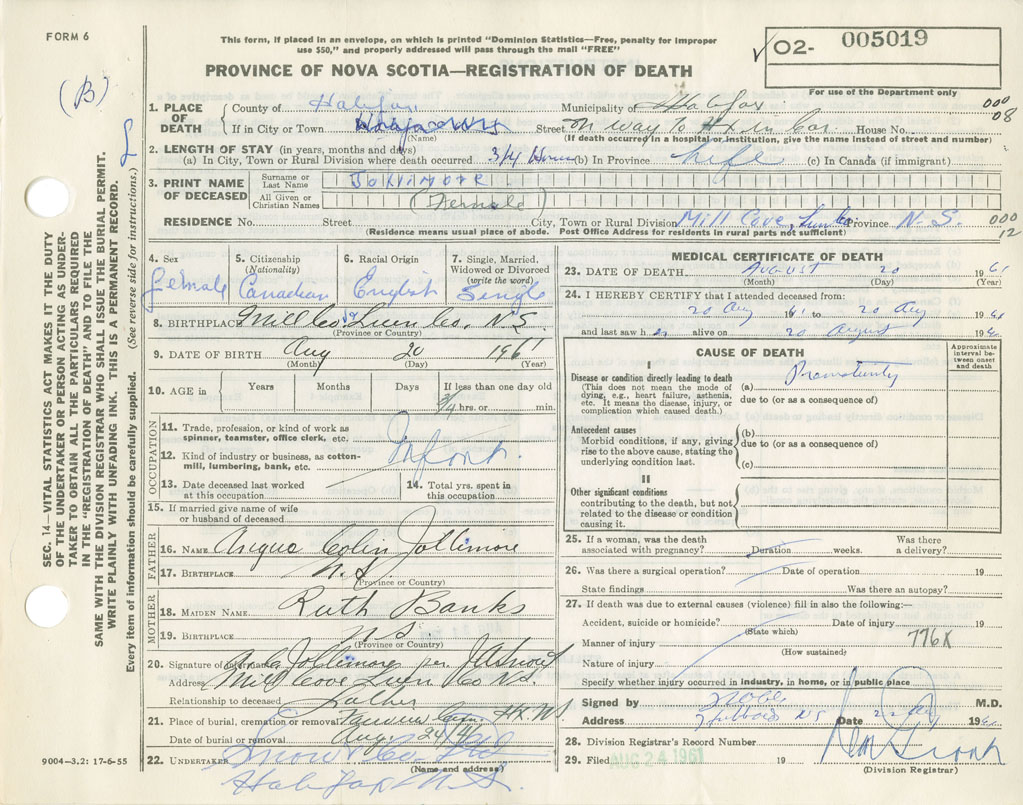 FORM 6
(B)
This form, if placed in an envelope, on which is printed "Dominion Statistics—Free, penalty for improper
use $50," and properly addressed will pass through the mail "FREE"
PROVINCE OF NOVA SCOTIA—REGISTRATION OF DEATH
✓ 02- 005019
For use of the Department only
1. PLACE OF DEATH
County of Halifax Municipality of Halifax 000 08
If in City or Town Street on way to Hx in Car House No.
(Name) (If death occurred in a hospital or institution, give the name instead of street and number)
2. LENGTH OF STAY (in years, months and days)
(a) In City, Town or Rural Division where death occurred 3/4 Hour (b) In Province Life (c) In Canada (if immigrant)
3. PRINT NAME OF DECEASED
Surname or Last Name JOLLIMORE
All Given or Christian Names (Female)
RESIDENCE No. Street City, Town or Rural Division Mill Cove, Lun Co Province N-S. 000 12
(Residence means usual place of abode. Post Office Address for residents in rural parts not sufficient)
4. Sex
female
5. Citizenship
(Nationality)
Canadian
6. Racial Origin
English
7. Single, Married,
Widowed or Divorced
(write the word)
Single
8. BIRTHPLACE Mill Cove Lun Co, N.S.
(Province or Country)
9. DATE OF BIRTH Aug 20 1961
(Month) (Day) (Year)
10. AGE in Years Months Days If less than one day old
3/4 hrs. or min.
OCCUPATION
11. Trade, profession, or kind of work as
spinner, teamster, office clerk, etc.
12. Kind of industry or business, as cotton-
mill, lumbering, bank, etc.
Infant.
13. Date deceased last worked
at this occupation
14. Total yrs. spent in
this occupation
15. If married give name of wife
or husband of deceased
FATHER
16. NAME Angus Colin Jollimore
17. BIRTHPLACE N.S.
(Province or Country)
MOTHER
18. MAIDEN NAME Ruth Banks
19. BIRTHPLACE NS.
(Province or Country)
20. Signature of informant A.C. Jollimore per JASnow
Address Mill Cove Lun Co NS.
Relationship to deceased Father
21. Place of burial, cremation or removal
Date of burial or removal Aug 24/61
22. UNDERTAKER Snow & Co
(Name and address)
Halifax N.S.
9004—3.2: 17-6-55
MEDICAL CERTIFICATE OF DEATH
23. DATE OF DEATH August 20 1961
(Month) (Day) (Year)
24. I HEREBY CERTIFY that I attended deceased from:
20 Aug 1961 to 20 Aug 1961
and last saw her alive on 20 August 1961
CAUSE OF DEATH
Approximate
interval be-
tween onset
and death
I
Disease or condition directly leading to death
(This does not mean the mode of
dying, e.g., heart failure, asthenia,
etc. It means the disease, injury, or
complication which caused death.)
(a) Prematurity
due to (or as a consequence of)
Antecedent causes
Morbid conditions, if any, giving
rise to the above cause, stating the
underlying condition last.
(b)
due to (or as a consequence of)
(c)
II
Other significant conditions
contributing to the death, but not
related to the disease or condition
causing it.
25. If a woman, was the death Was there
associated with pregnancy? Duration weeks. a delivery?
26. Was there a surgical operation? Date of operation 19
State findings Was there an autopsy?
27. If death was due to external causes (violence) fill in also the following:—
Accident, suicide or homicide? Date of injury 19
(State which) 776X
Manner of injury
(How sustained)
Nature of injury
Specify whether injury occurred in industry, in home, or in public place
Signed by M.D.
Address Hubbards NS Date 22 Aug 1961
28. Division Registrar's Record Number
29. Filed AUG 24 1961 19
(Division Registrar)
SEC. 14—VITAL STATISTICS ACT MAKES IT THE DUTY
OF THE UNDERTAKER OR PERSON ACTING AS UNDER-
TAKER TO OBTAIN ALL THE PARTICULARS REQUIRED
IN THE "REGISTRATION OF DEATH" AND TO FILE THE
SAME WITH THE DIVISION REGISTRAR WHO SHALL ISSUE THE BURIAL PERMIT.
WRITE PLAINLY WITH UNFADING INK. THIS IS A PERMANENT RECORD.
Every item of information should be carefully supplied. (See reverse side for instructions.)